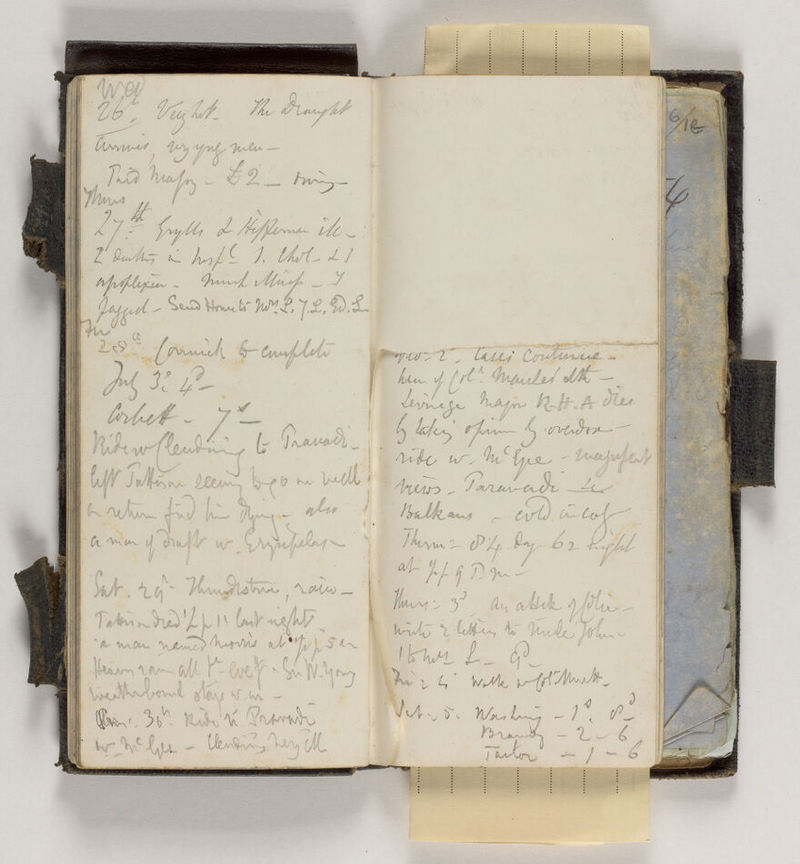 Wed
26th. Very hot. The Draught
arrives, very yng men –
Paid Major – £2 –
Thurs
27th Grylls & Heffernan ill –
2 deaths in Hospl 1. Chol. & 1
apoplexia. – much – I
fagged – Send Home to Mrs L.
Fri
28th Cormick to complete
July 3s. 4d –
Corbett – 7d –
Ride w Clendining to Pravadi –
left Tattersn seeming to go on well
on return find him dying – also
a man of draft w. Erysipelas –
Sat. 29th Thunderstorm, rain –
died ½ p 11 last night
a man named Morris at ½ p 5 am
Heavy rain all the eveg – Sir W. Young
weatherbound stays w us –
Sun. 30th Ride to Pravadi
w McGee – Clendining very ill
Wed. 2d. Cases continue –
hear of Coln Maule's dth –
Levinge Major R.H.A dies
by taking opium by overdose –
ride w. McGee – magnificent
views – Paravadi &c
Balkans – cold in
Therm: 84 Day 62 night
at ½ p 9 P.m –
Thurs: 3d an attack of –
write 2 letters to Uncle John –
1 to Mrs L –
Fri: 4 walk w Col.
Sat. 5. Washing – 1s. 8d –
Brandy – 2 – 6
Tailor – 1 – 6